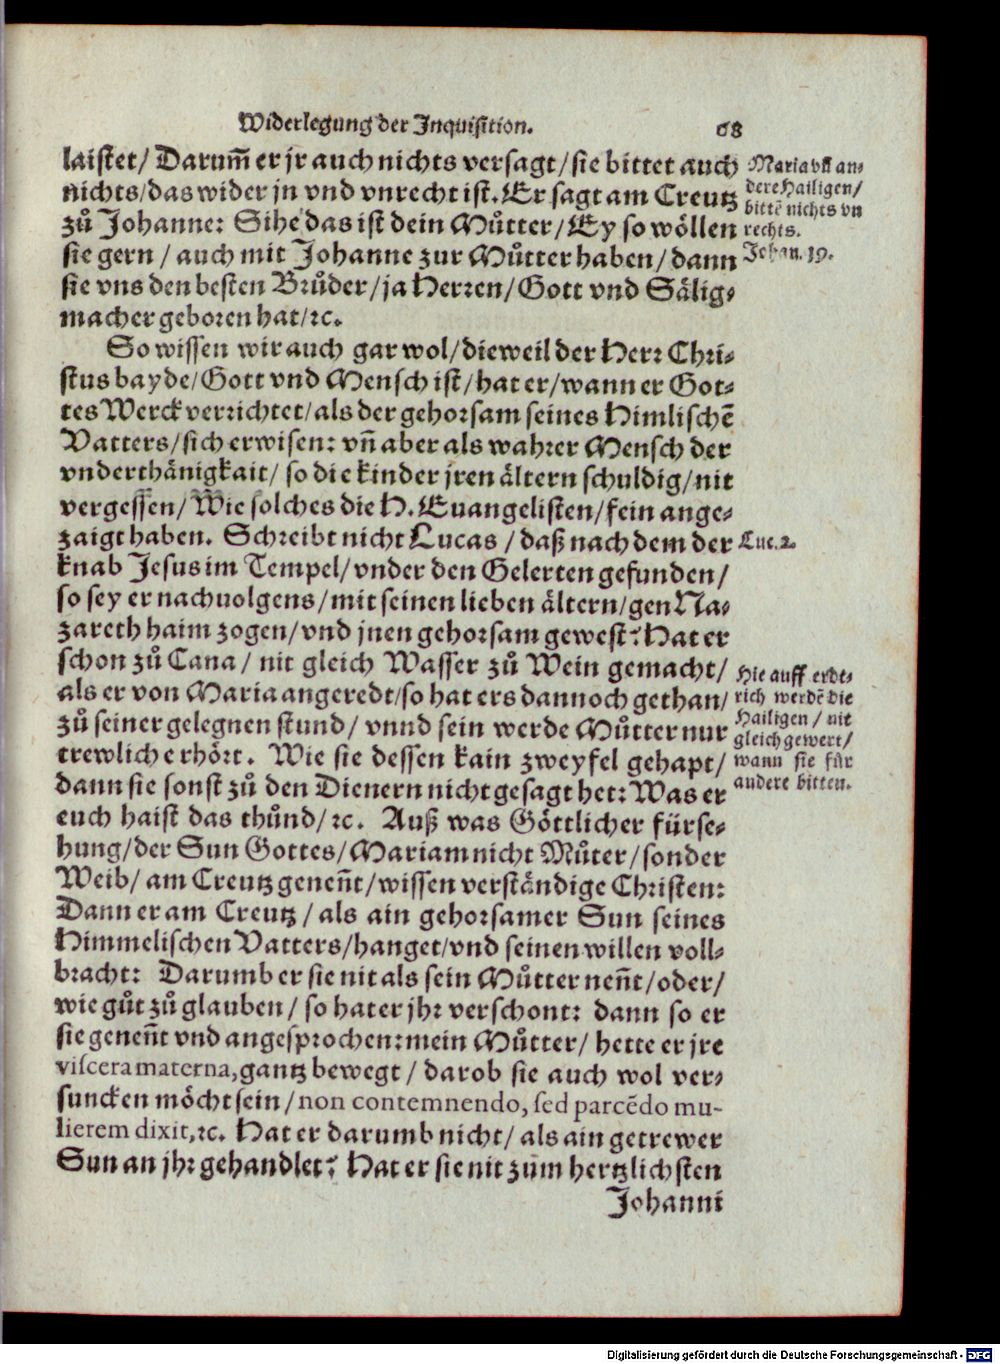 Widerlegung der Inquisition. 68
laistet/ Darum̃ er jr auch nichts versagt/ sie bittet auch
nichts/ das wider jn vnd vnrecht ist. Er sagt am Creutz
zů Johanne: Sihe das ist dein Můtter/ Ey so wöllen
sie gern / auch mit Johanne zur Můtter haben/ dann
sie vns den besten Brůder/ ja Herren/ Gott vnd Sälig-
macher geboren hat/ ꝛc.
Maria vñ an-
dere Hailigen/
bittē nichts vn
rechts.
Johan. 19.
So wissen wir auch gar wol/ dieweil der Herr Chri-
stus bayde/ Gott vnd Mensch ist/ hat er/ wann er Got-
tes Werck verrichtet/ als der gehorsam seines Himlischē
Vatters/ sich erwisen: vñ aber als wahrer Mensch der
vnderthänigkait/ so die kinder jren ältern schuldig/ nit
vergessen/ Wie solches die H. Euangelisten/ fein ange-
zaigt haben. Schreibt nicht Lucas / daß nach dem der
knab Jesus im Tempel/ vnder den Gelerten gefunden/
so sey er nachuolgens/ mit seinen lieben ältern/ gen Na-
zareth haim zogen/ vnd jnen gehorsam gewest? Hat er
schon zů Cana / nit gleich Wasser zů Wein gemacht/
als er von Maria angeredt/ so hat ers dannoch gethan/
zů seiner gelegnen stund/ vnnd sein werde Můtter nur
trewlich erhört. Wie sie dessen kain zweyfel gehapt/
dann sie sonst zů den Dienern nicht gesagt het: Was er
euch haist das thůnd/ ꝛc. Auß was Göttlicher fürse-
hung/ der Sun Gottes/ Mariam nicht Můter/ sonder
Weib/ am Creutz geneñt/ wissen verständige Christen:
Dann er am Creutz / als ain gehorsamer Sun seines
Himmelischen Vatters/ hanget/ vnd seinen willen voll-
bracht: Darumb er sie nit als sein Můtter neñt/ oder/
wie gůt zů glauben/ so hat er jhr verschont: dann so er
sie geneñt vnd angesprochen: mein Můtter/ hette er jre
viscera materna, gantz bewegt / darob sie auch wol ver-
suncken möcht sein/ non contemnendo, sed parcēdo mu-
lierem dixit, ꝛc. Hat er darumb nicht/ als ain getrewer
Sun an jhr gehandlet? Hat er sie nit zům hertzlichsten
Luc. 2.
Hie auff erdt-
rich werdē die
Hailigen / nit
gleich gewert/
wann sie für
andere bitten.
Johanni
Digitalisierung gefördert durch die Deutsche Forschungsgemeinschaft - DFG